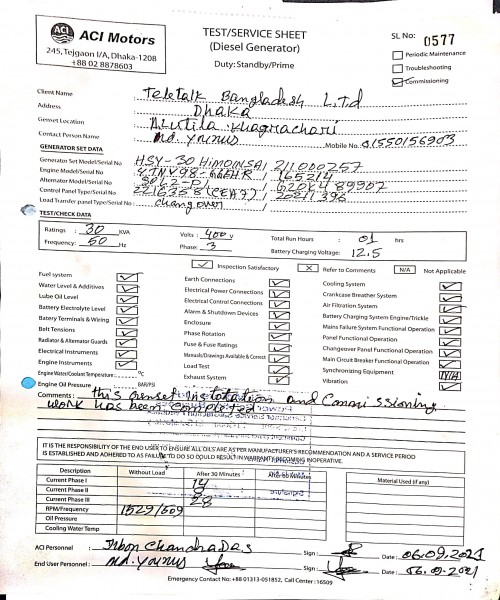 ACI Motors
245, Tejgaon I/A, Dhaka-1208
+88 02 8878603
TEST/SERVICE SHEET
(Diesel Generator)
Duty: Standby/Prime
SL No: 0577
Periodic Maintenance
Troubleshooting
Commissioning
Client Name : Teletalk Bangladesh LTd
Address : Dhaka
Genset Location : Alutila Khagrachari
Contact Person Name : Md. Younus Mobile No. 01550156903
GENERATOR SET DATA
Generator Set Model/Serial No : HSY-30 HIMOINSA, 211000757
Engine Model/Serial No
Alternator Model/Serial No
Control Panel Type/Serial No
Load Transfer panel Type/Serial No : changover
TEST/CHECK DATA
Ratings : 30 KVA Volts : 400 v Total Run Hours : 01 hrs
Frequency: 50 Hz Phase : 3 Battery Charging Voltage: 12.5
Inspection Satisfactory X Refer to Comments N/A Not Applicable
Fuel system
Water Level & Additives
Lube Oil Level
Battery Electrolyte Level
Batery Terminals & Wiring
Belt Tensions
Radiator & Alternator Guards
Electrical Instruments
Engine Instruments
Engine Water/Coolant Temperature °C
Engine Oil Pressure BAR/PSI
Earth Connections
Electrical Power Connections
Electrical Control Connections
Alarm & Shutdown Devices
Enclosure
Phase Rotation
Fuse & Fuse Ratings
Manuals/Drawings Available & Correct
Load Test
Exhaust System
Cooling System
Crankcase Breather System
Air Filtration System
Battery Charging System Engine/Trickle
Mains Failure System Functional Operation
Panel Functional Operation
Changeover Panel Functional Operation
Main Circuit Breaker Functional Operation
Synchronizing Equipment N/A
Vibration
Comments : this genset instotation and Commissioning
work has been completed
IT IS THE RESPONSIBILITY OF THE END USER TO ENSURE ALL OILS ARE AS PER MANUFACTURER'S RECOMMENDATION AND A SERVICE PERIOD
IS ESTABLISHED AND ADHERED TO AS FAILURE TO DO SO COULD RESULT IN WARRANTY BECOMING INOPERATIVE.
Description Without Load After 30 Minutes After 60 Minutes Material Used (if any)
Current Phase I 14
Current Phase II
Current Phase III 28
RPM/Frequency 1529/509
Oil Pressure
Cooling Water Temp
ACI Personnel : Chandra Das Sign : Date : 06.09.2021
End User Personnel : Md. Younus Sign : Date : 06.09.2021
Emergency Contact No: +88 01313-051852, Call Center : 16509